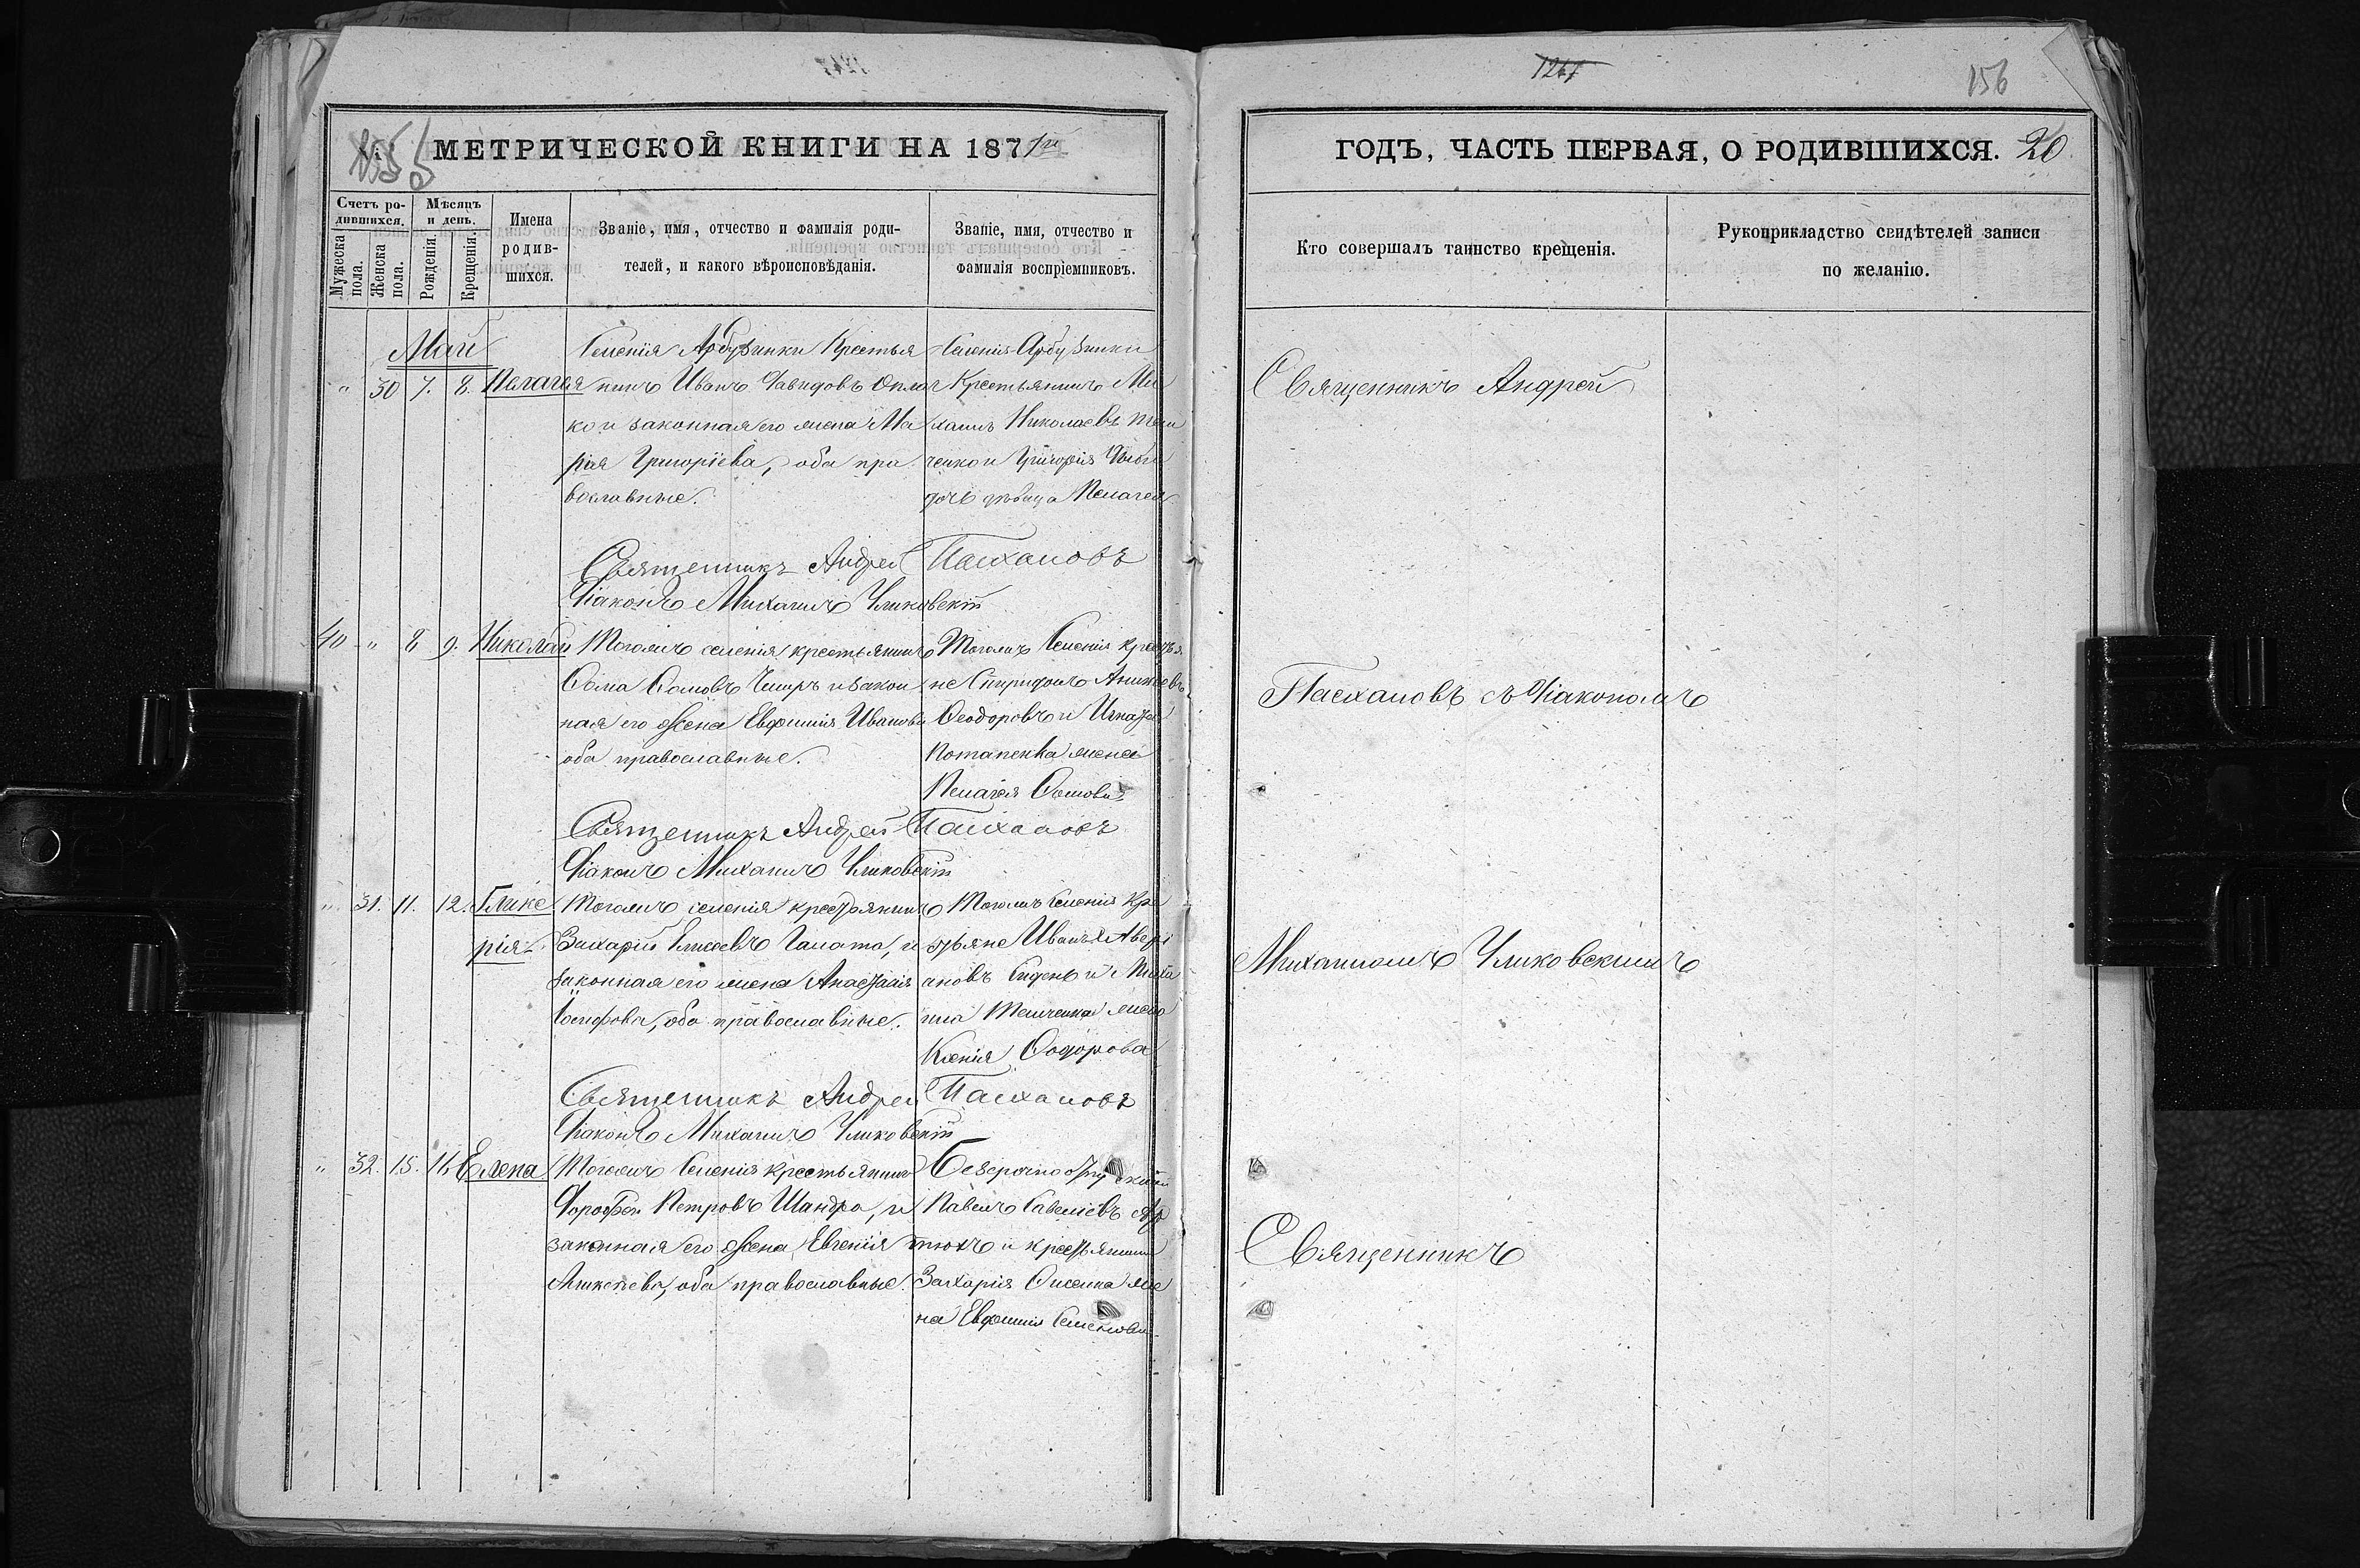 1267
156
МЕТРИЧЕСКОЙ КНИГИ НА 1871й
ГОДЪ, ЧАСТЬ ПЕРВАЯ, О РОДИВШИХСЯ. 20
Счетъ ро-
дившихся.
Мужеска
пола.
Женска
пола.
Мѣсяцъ
и день.
Рожденія.
Крещенія.
Имена
родив-
шихся.
Званіе, имя, отчество и фамилія роди-
телей, и какого вѣроисповѣданія.
Званіе, имя, отчество и
фамилія воспріемниковъ.
Кто совершалъ таинство крещенія.
Рукоприкладство свидѣтелей записи
по желанію.
Май
" 30 7. 8. Пелагея
Селенія Арбузинки Крестья
нинъ Иванъ Давидовъ
ко и законная его жена Ма
рія Григоріева, оба пра
вославные.
Селенія Арбузинки
Крестьянинъ Ми
хаилъ Николаевъ
ченко и Григорія
дочь дѣвица Пелагея
Священникъ Андрей Пасхаловъ
Діаконъ Михаилъ Уликовскій
40 " 8 9. Николай
Тогожъ селенія крестьянинъ
Ѳома Ѳомовъ и закон
ная его жена Евфимія Иванова
оба православные.
Тогожъ Селенія Крестья
не Спиридонъ
Ѳеодоровъ и Игнатія
Потапенка жена
Пелагія Ѳомова
Священникъ Андрей Пасхаловъ
Діаконъ Михаилъ Уликовскій
" 31. 11. 12. Глике
рія
Тогожъ селенія крестьянинъ
Захарій Елисеевъ Галата, и
законная его жена Анастасія
Іосифова, оба православные.
Тогожъ Селенія Кре
стьяне Иванъ Авері
ановъ Сидень и Миха
ила жена
Ксенія Ѳодорова
Священникъ Андрей Пасхаловъ
Діаконъ Михаилъ Уликовскій
" 32. 15. 16 Елена
Тогожъ Селенія крестьянинъ
Дороѳей Петровъ Шандра, и
законная его жена Евгенія
Аникіева, оба православные.
Павелъ Савеліевъ Ар
тюхъ и крестьянина
Захарія жена
на Евфимія Семенова
Священникъ Андрей
Пасхаловъ съ Діакономъ
Михаиломъ Уликовскимъ
Священникъ